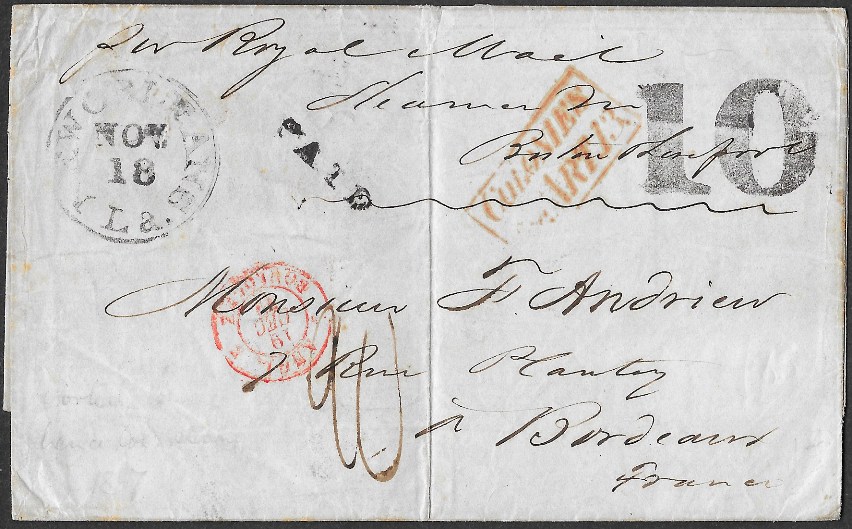 per Royal Mail
Steamer
Boston Liverpool
W ORLEANS
NOV
18
La.
PAID
COLONIES
ART.13.
10
Monsieur F. Andrieu
7 Rue Plantey
à Bordeaux
France